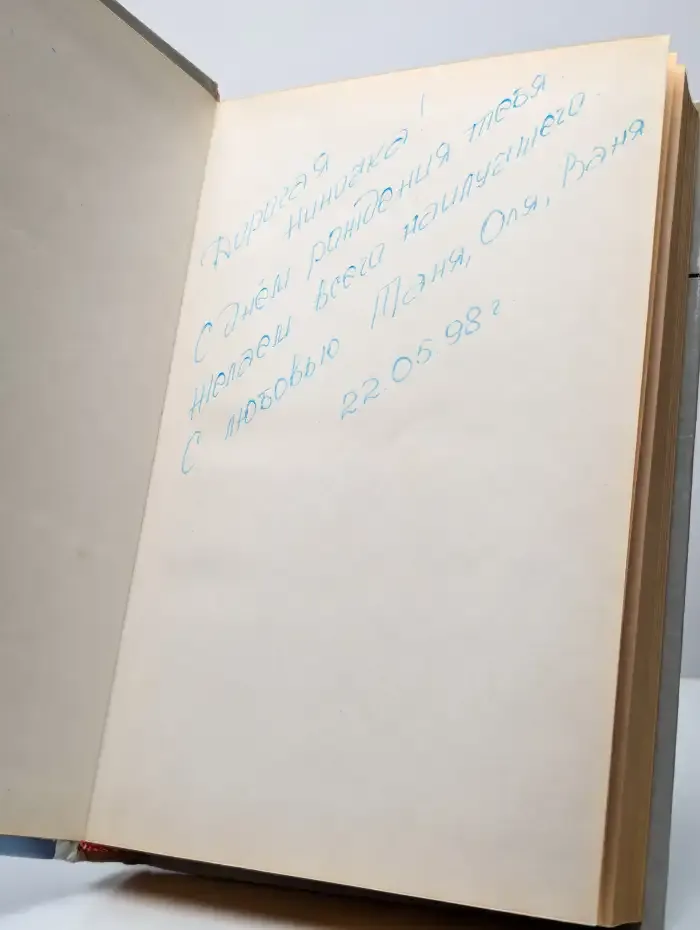 Дорогая
Ниночка!
С днём рождения тебя
желаем всего наилучшего.
С любовью Таня, Оля, Ваня
22.05.98 г